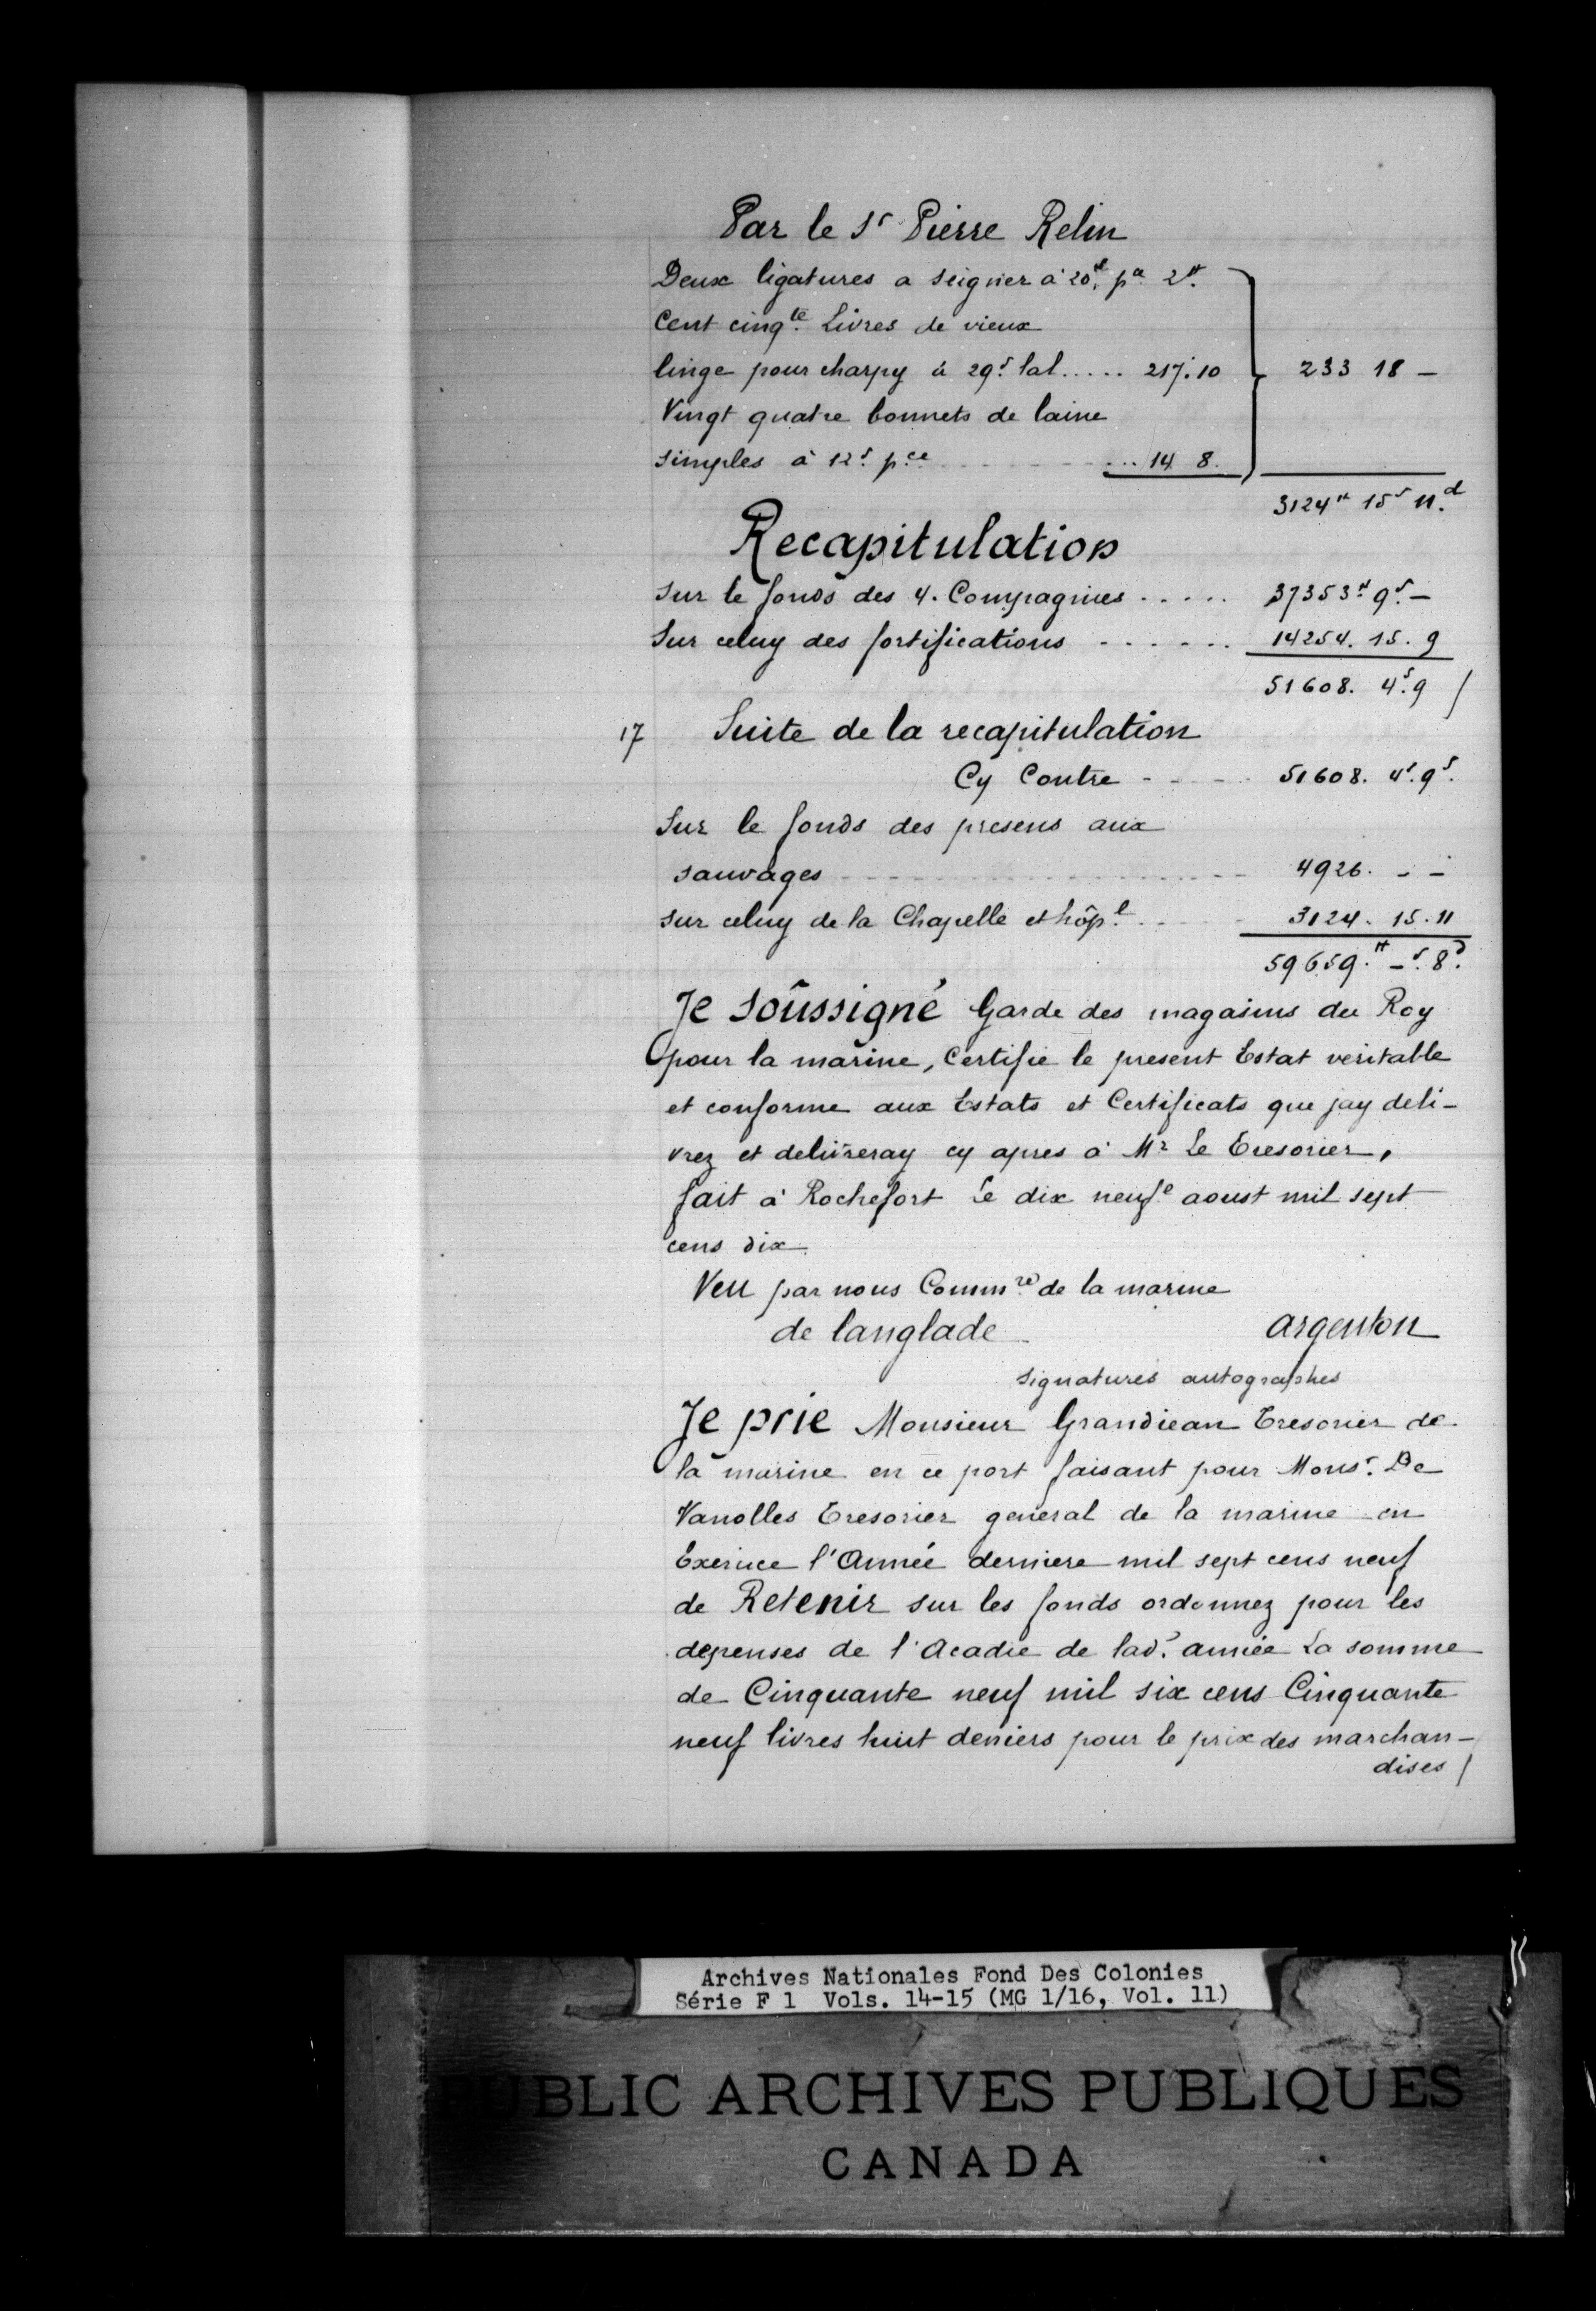 Par le Sr Pierre Relin
Deux ligatures a seigner à 20s. pce 2#.
Cent cinqte. Livres de vieux
linge pour charpy à 29s. lal ..... 217.10 233 18 —
Vingt quatre bonnets de laine
simples à 12s. pce ... 14 8.
3124# 15s 11.d
Recapitulation
Sur le fonds des 4. Compagnies ..... 37353# 9s. —
Sur celuy des fortifications ...... 14254. 15. 9
51608. 4s. 9 /
17 Suite de la recapitulation
Cy Contre - - - - 51608. 4s. 9s.
Sur le fonds des presens aux
sauvages - - - - 4926. - -
sur celuy de la Chapelle et hôpl. - - - 3124. 15. 11
59659.# - s. 8d.
Je soussigné Garde des magasins du Roy
pour la marine, Certifie le present Estat veritable
et conforme aux Estats et Certificats que jay deli-
vrez et delivreray cy apres à Mr Le Tresorier,
fait à Rochefort Le dix neufe aoust mil sept
cens dix
Veu par nous Commre de la marine
de langlade argenton
signatures autographes
Je prie Monsieur Grandiean Tresorier de
la marine en ce port faisant pour Monsr. De
Vanolles Tresorier general de la marine en
Exercice l'Année derniere mil sept cens neuf
de Retenir sur les fonds ordonnez pour les
depenses de l'Acadie de lade. année La somme
de Cinquante neuf mil six cens Cinquante
neuf livres huit deniers pour le prix des marchan-
dises /
Archives Nationales Fond Des Colonies
Série F 1 Vols. 14-15 (MG 1/16, Vol. 11)
PUBLIC ARCHIVES PUBLIQUES
CANADA